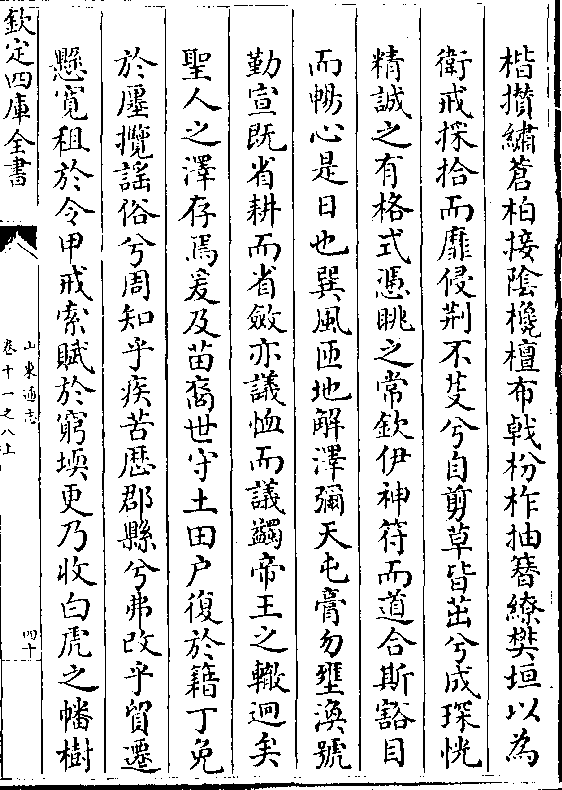 楷攅繡蒼柏接陰欃檀布㦸枌柞抽簪繚樊垣以為
衛戒採拾而靡侵荆不芟兮自剪草皆茁兮成琛恍
精誠之有格式憑眺之常欽伊神符而道合斯豁目
而暢心是日也巽風匝地解澤彌天屯膏勿壅渙號
勤宣既省耕而省斂亦議恤而議蠲帝王之轍迥矣
聖人之澤存焉爰及苗裔世守土田户復於籍丁免
於廛攬謡俗兮周知乎疾苦歴郡縣兮弗改乎貿遷
懸寛租於令甲戒索賦於窮堧更乃收白虎之幡樹
欽定四庫全書
山東通志
卷十一之八上
四十